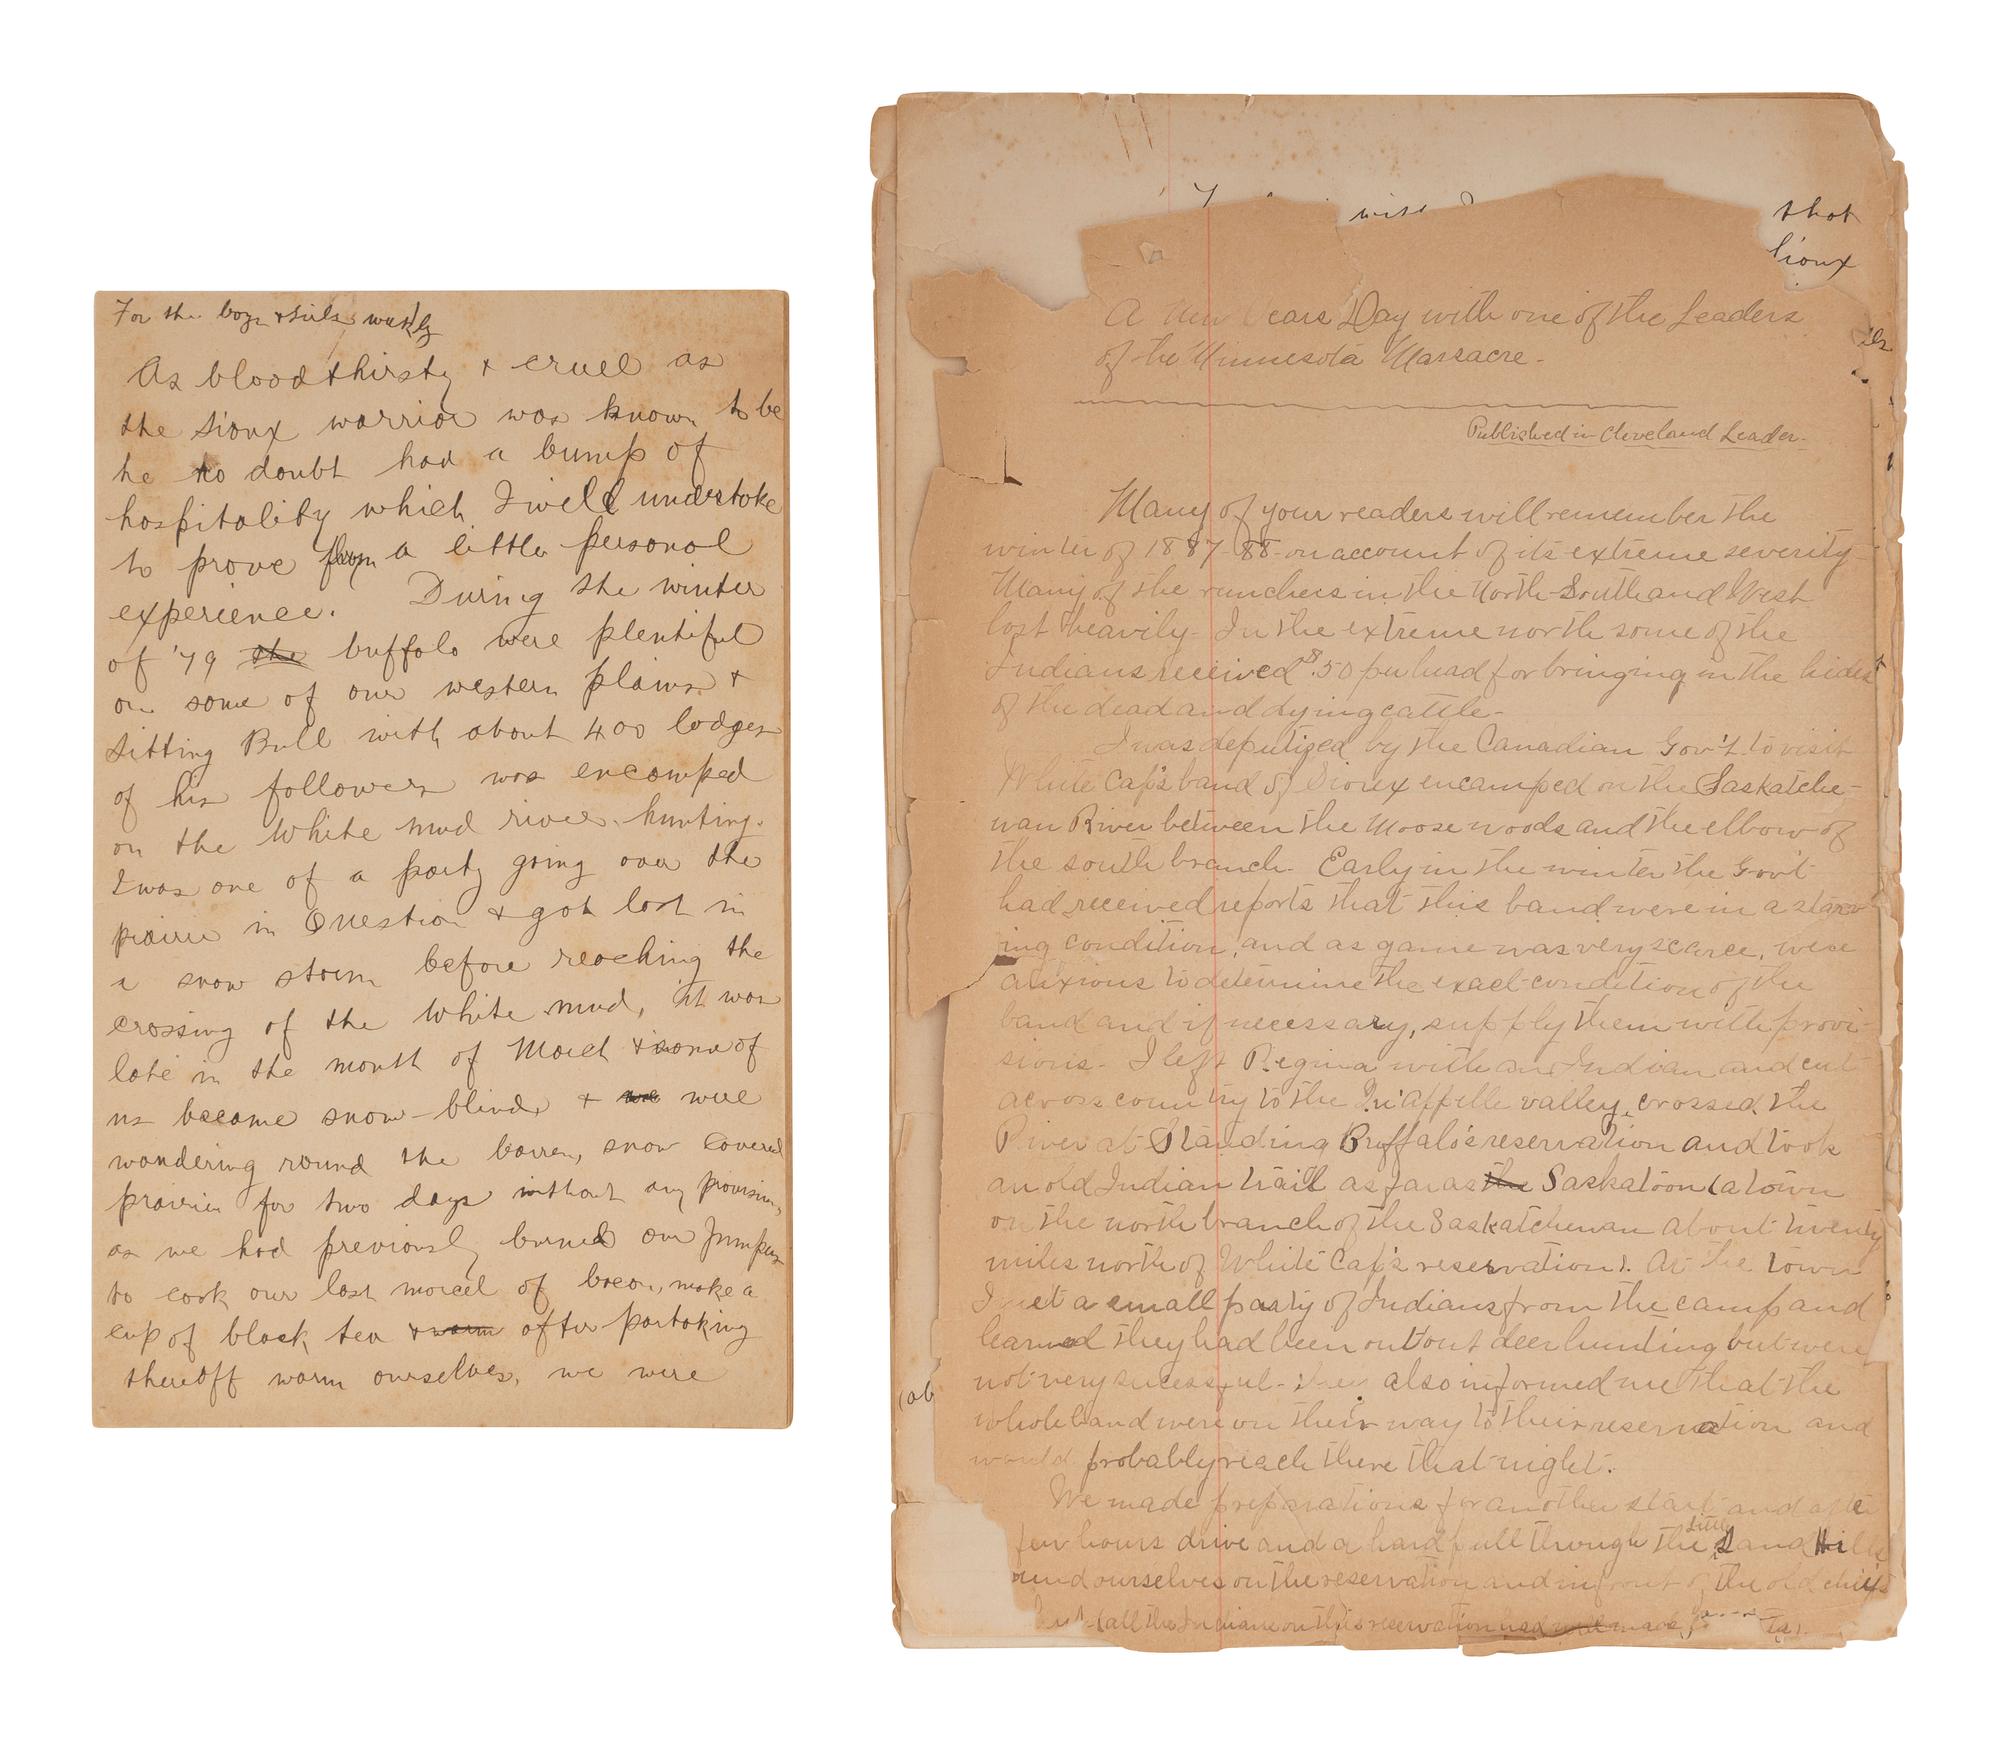 For the boys & girls weekly
As bloodthirsty & cruel as
the Sioux warrior was known to be
he no doubt had a bump of
hospitality which I will undertake
to prove from a little personal
experience. During the winter
of '79 the buffalo were plentiful
on some of our western plains &
Sitting Bull with about 400 lodges
of his followers was encamped
on the White mud river hunting.
I was one of a party going over the
prairie in Question & got lost in
a snow storm before reaching the
crossing of the White mud, it was
late in the month of March & some of
us became snow-blind & we were
wandering round the barren, snow covered
prairie for two days without any provisions,
as we had previously burned our Jumpers
to cook our last morcel of bacon, make a
cup of black tea & warm after partaking
thereoff warm ourselves, we were
wise that
Sioux
A New Years Day with one of the Leaders
of the Minnesota Massacre.
Published in Cleveland Leader.
Many of your readers will remember the
winter of 1887-88 on account of its extreme severity
Many of the ranchers in the North South and West
lost heavily. In the extreme north some of the
Indians received $.50 per head for bringing in the hides
of the dead and dying cattle.
I was deputized by the Canadian Gov't to visit
White Cap's band of Sioux encamped on the Saskatche-
wan River between the Moose woods and the elbow of
the south branch. Early in the winter the Gov't
had received reports that this band were in a starv
ing condition, and as game was very scarce, were
anxious to determine the exact condition of the
band and if necessary, supply them with provi-
sions. I left Regina with an Indian and cut
across country to the Qu'Appelle valley, crossed the
River at Standing Buffalo's reservation and took
an old Indian trail as far as the Saskatoon (a town
on the north branch of the Saskatchewan about twenty
miles north of White Cap's reservation). At the town
I met a small party of Indians from the camp and
learned they had been out out deer hunting but were
not very sucessful. They also informed me that the
(ob
whole band were on their way to their reservation and
would probably reach there that night.
We made preparations for another start and after
few hours drive and a hard pull through the Little Sand Hills
ound ourselves on the reservation and in front of the old chief's
(all the Indians on this reservation had